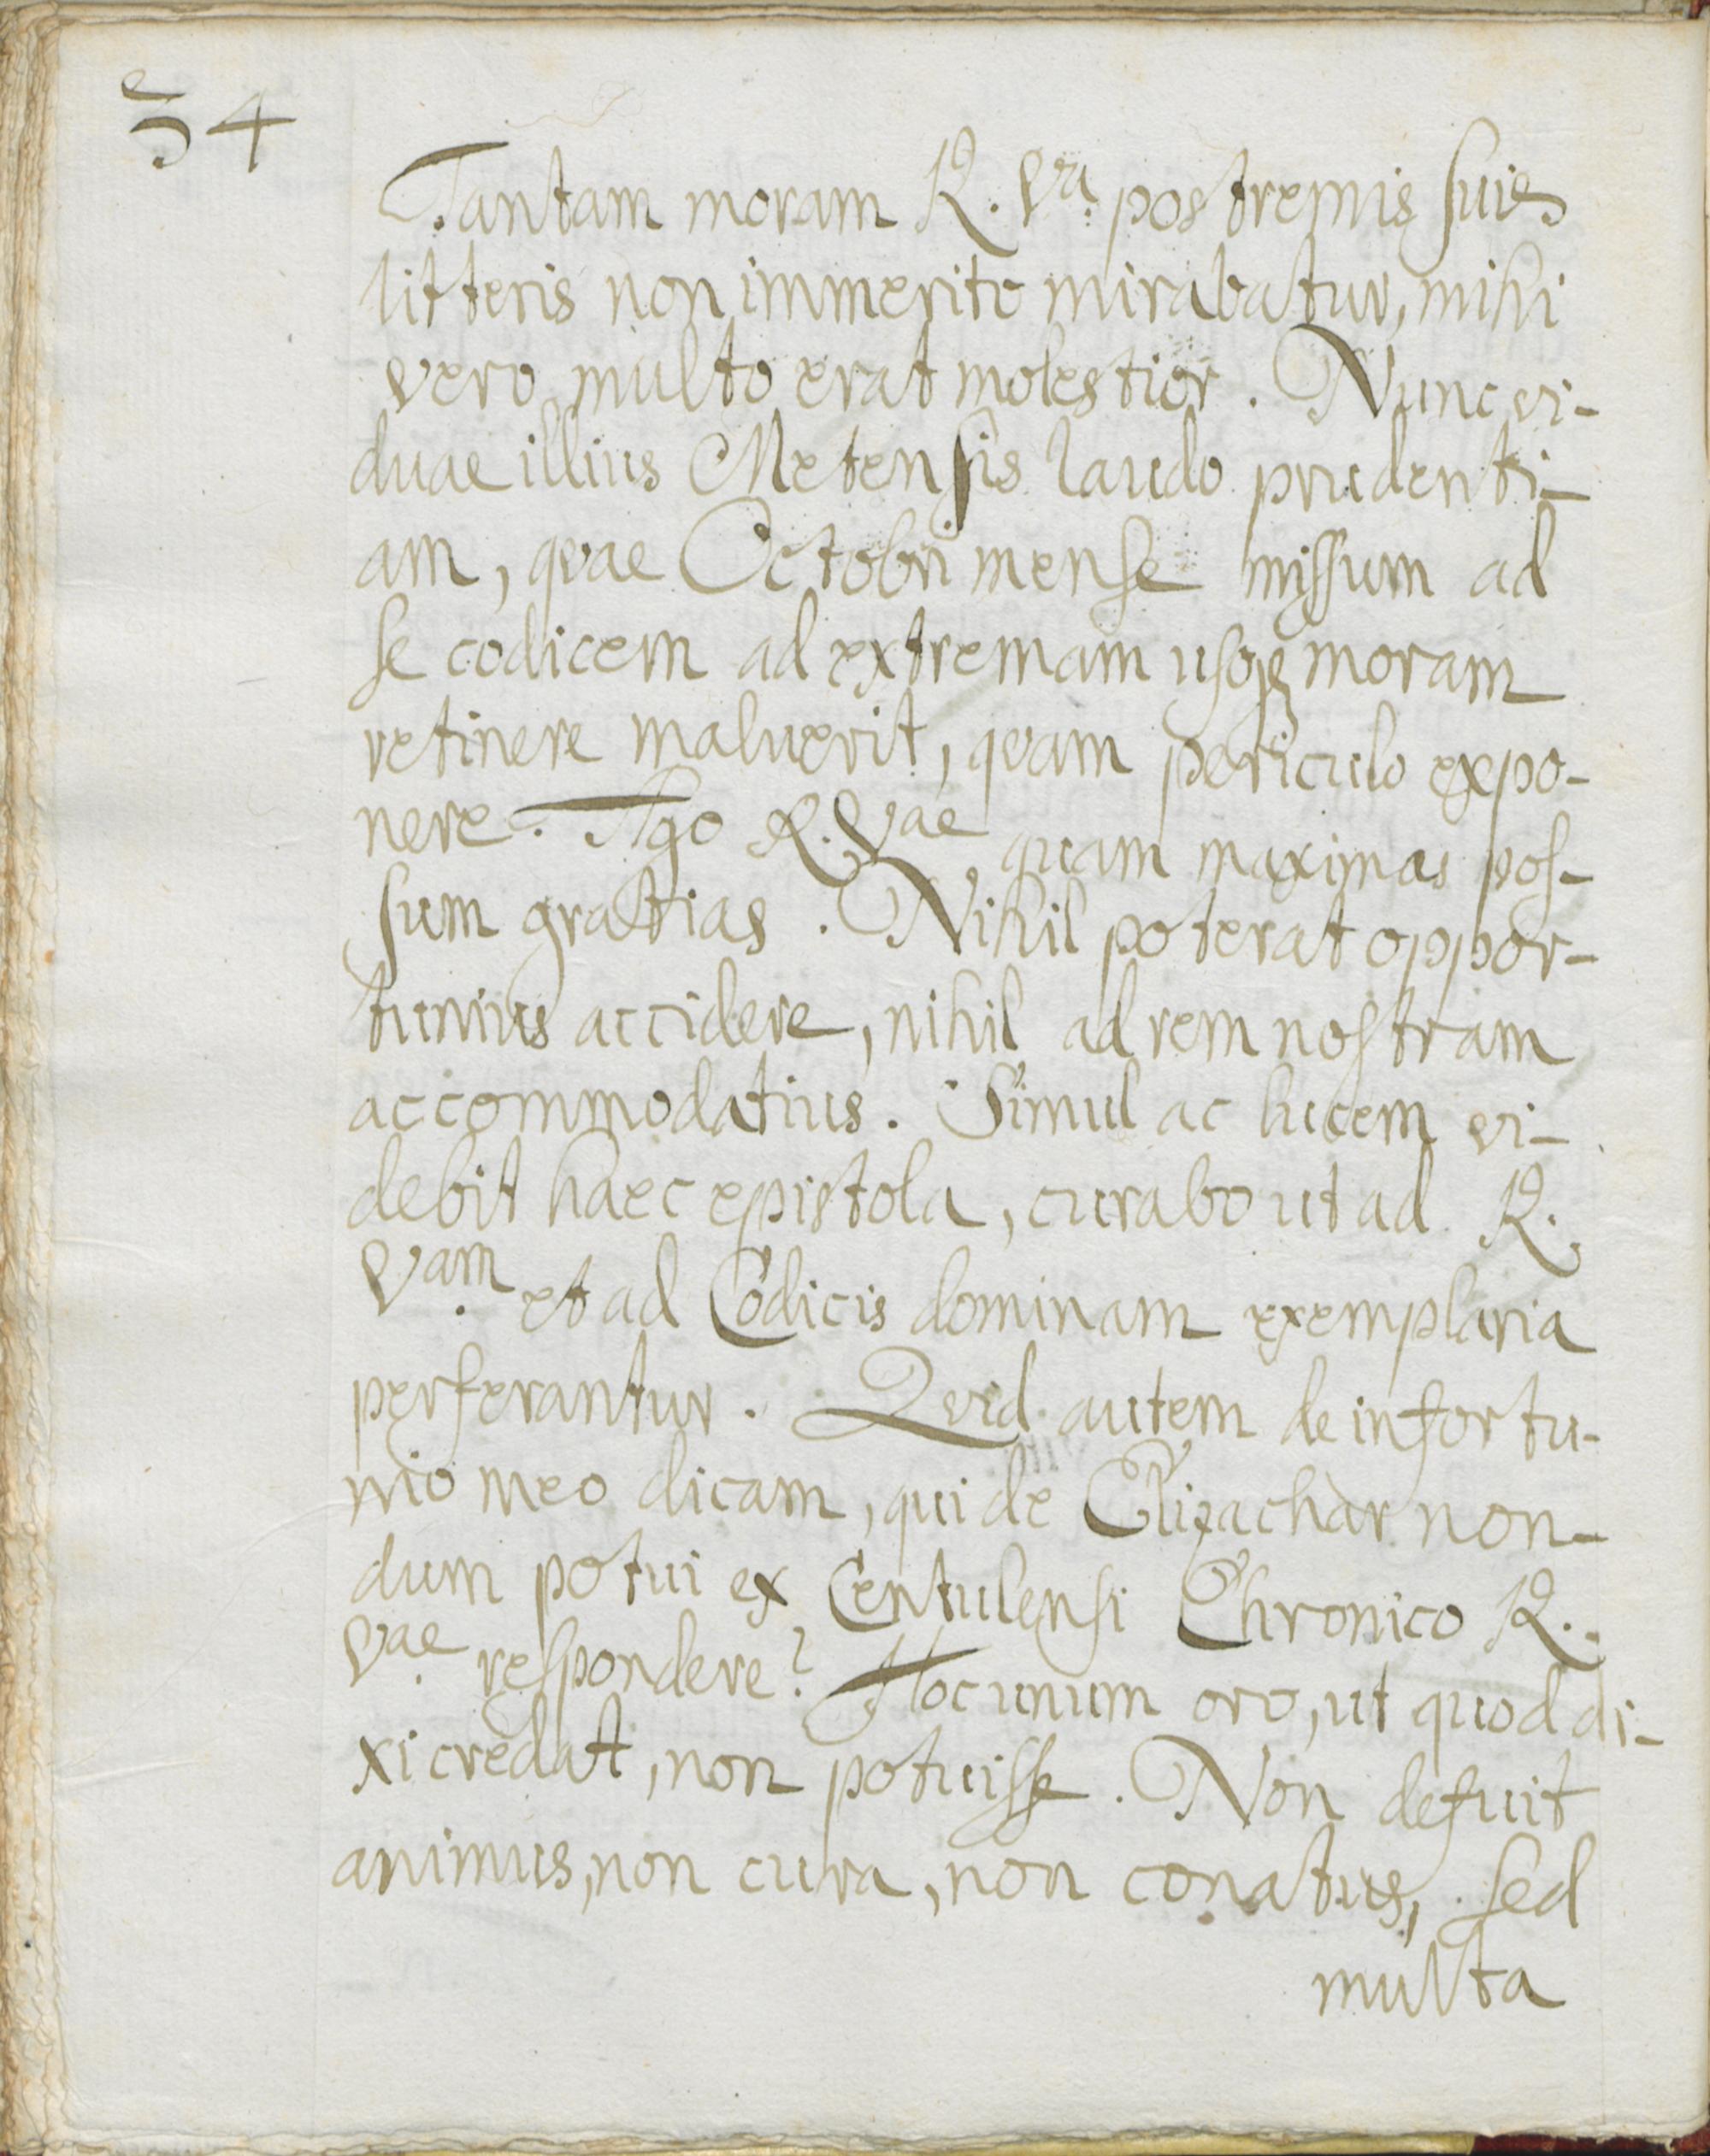 54
Tantam moram R. Vra. postremis suis
litteris non immerito mirabatur, mihi
vero multo erat molestior. Nunc vi-
duae illius Metensis laudo prudenti-
am, quae Octobri mense missum ad
se codicem ad extremam usq; moram
retinere maluerit, quam periculo expo-
nere. Ago R. Vae quam maximas pos-
sum gratias. Nihil poterat oppor-
tunius accidere, nihil ad rem nostram
accommodatius. Simul ac lucem vi-
debit haec epistola, curabo ut ad R.
Vam. et ad Codicis dominam exemplaria
perferantur. Quid autem de infortu-
nio meo dicam, qui de Elizachar non-
dum potui ex Centulensi Chronico R.
Vae. respondere? Hoc unum oro, ut quod di-
xi credat, non potuisse. Non defuit
animus, non cura, non conatus, sed
multa